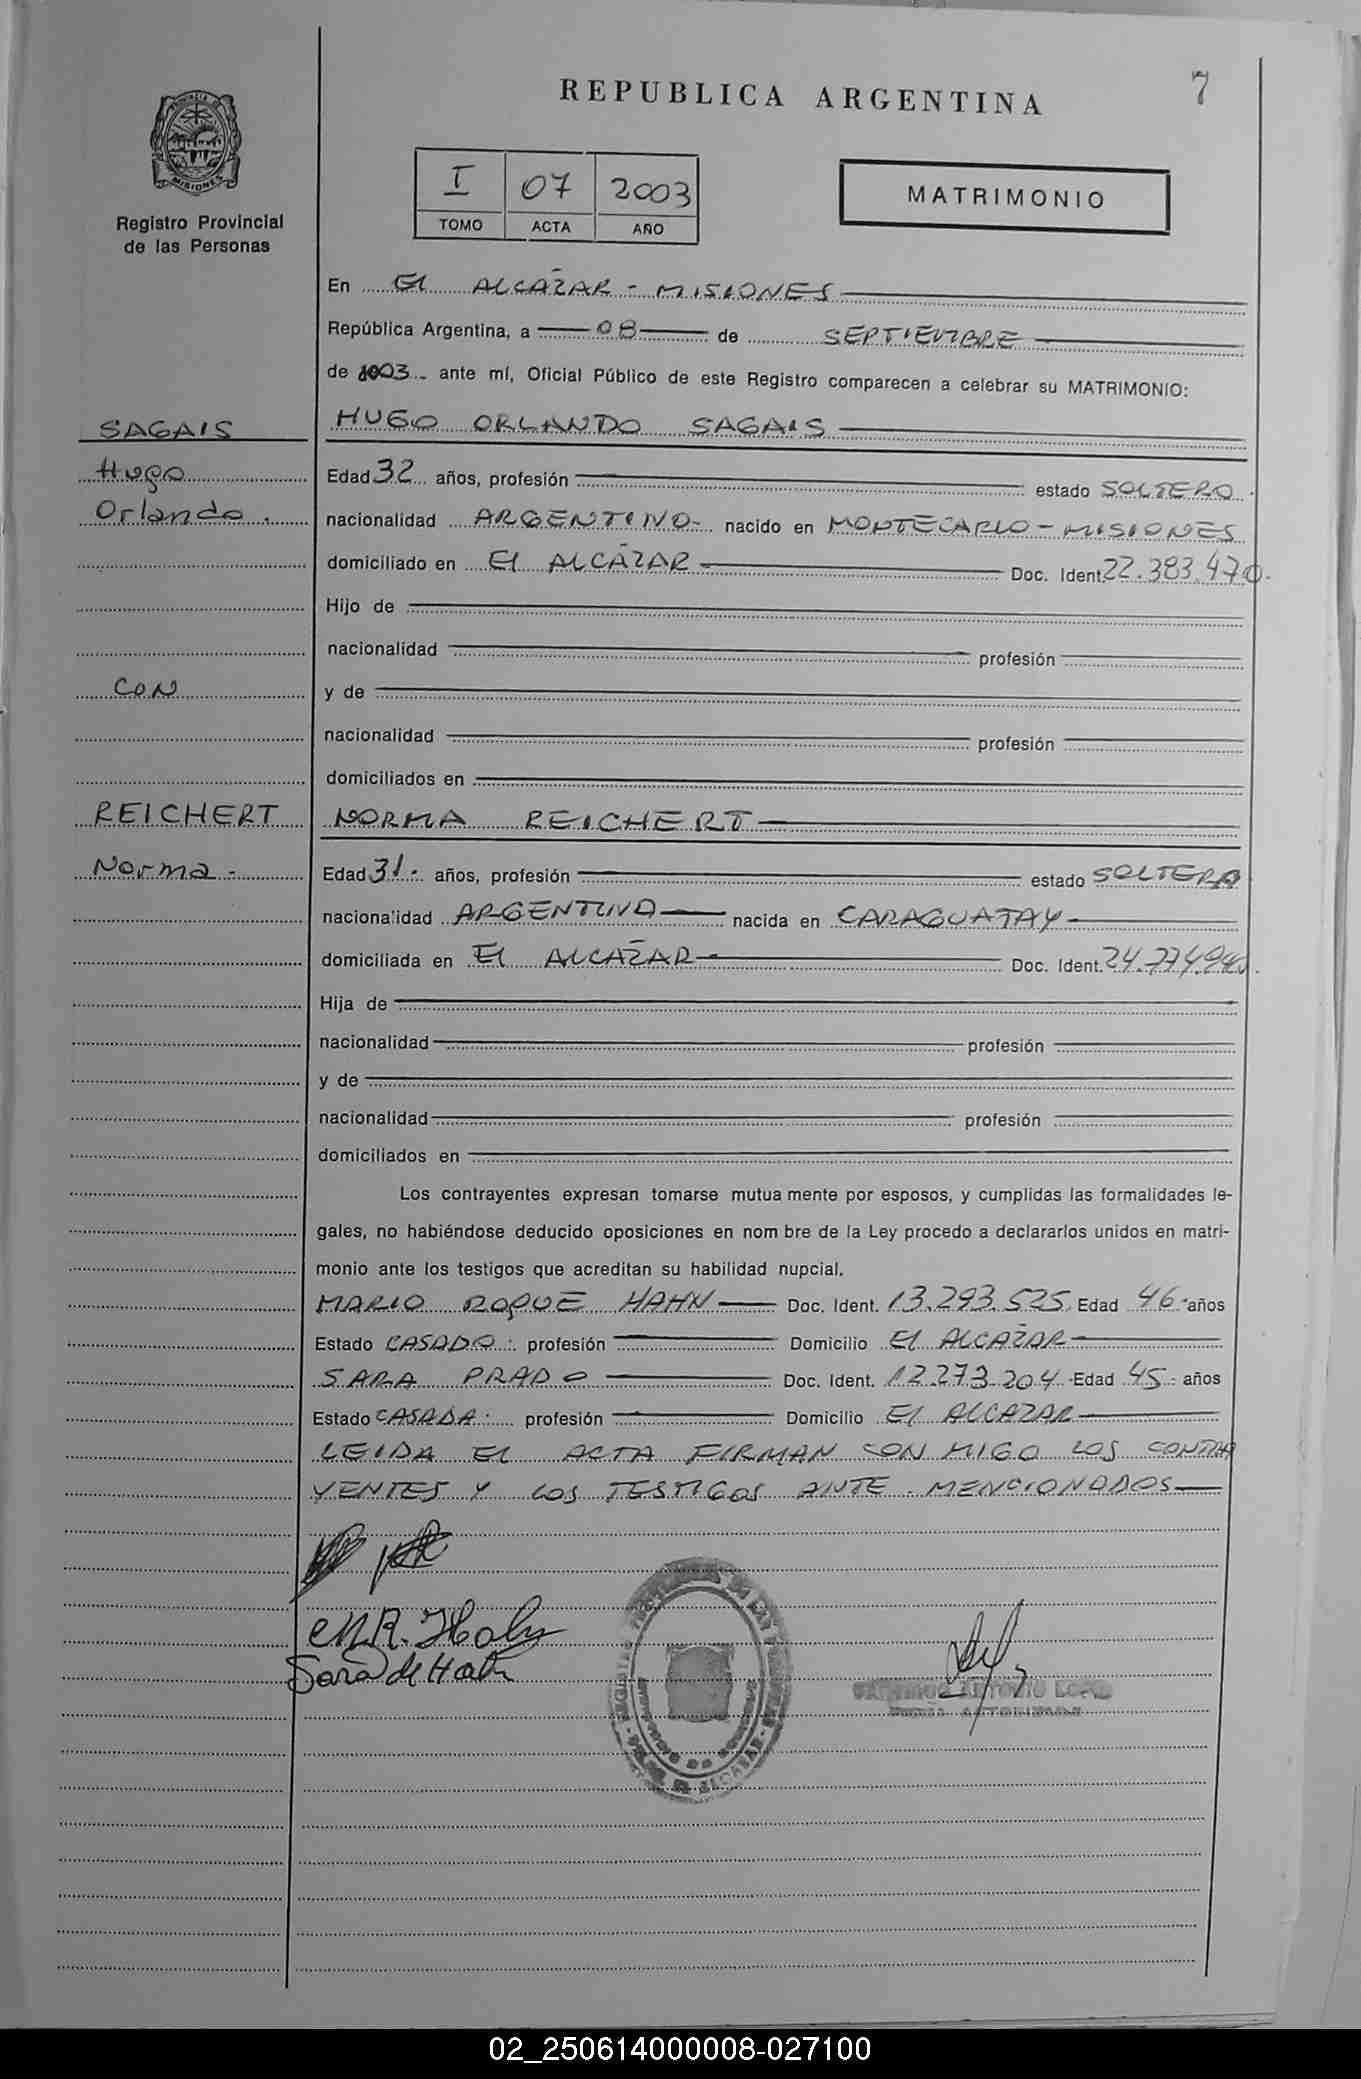 7
REPUBLICA ARGENTINA
PROVINCIA DE
MISIONES
Registro Provincial
de las Personas
I 07 2003
TOMO ACTA AÑO
MATRIMONIO
En El ALCAZAR - MISIONES
República Argentina, a 08 de SEPTIEMBRE
de 2003 ante mí, Oficial Público de este Registro comparecen a celebrar su MATRIMONIO:
SAGAIS HUGO ORLANDO SAGAIS
Hugo Edad 32 años, profesión estado SOLTERO
Orlando. nacionalidad ARGENTINO- nacido en MONTECARLO - MISIONES
domiciliado en El ALCÁZAR Doc. Ident. 22.383.470.
Hijo de
nacionalidad profesión
CON y de
nacionalidad profesión
domiciliados en
REICHERT NORMA REICHERT
Norma - Edad 31. años, profesión estado SOLTERA
nacionalidad ARGENTINA nacida en CARAGUATAY
domiciliada en El ALCAZAR Doc. Ident. 24.774.
Hija de
nacionalidad profesión
y de
nacionalidad profesión
domiciliados en
Los contrayentes expresan tomarse mutua mente por esposos, y cumplidas las formalidades le-
gales, no habiéndose deducido oposiciones en nom bre de la Ley procedo a declararlos unidos en matri-
monio ante los testigos que acreditan su habilidad nupcial.
MARIO ROQUE HAHN Doc. Ident. 13.293.525 Edad 46 años
Estado CASADO. profesión Domicilio El ALCAZAR
SARA PRADO Doc. Ident. 12.273.204 Edad 45 años
Estado CASADA. profesión Domicilio El ALCAZAR
LEIDA El ACTA FIRMAN CON MIGO LOS CONTRA
YENTES Y LOS TESTIGOS ANTE MENCIONADOS
M.R. Hahn
Sara de Hahn
ANTONIO LOPEZ
02_250614000008-027100